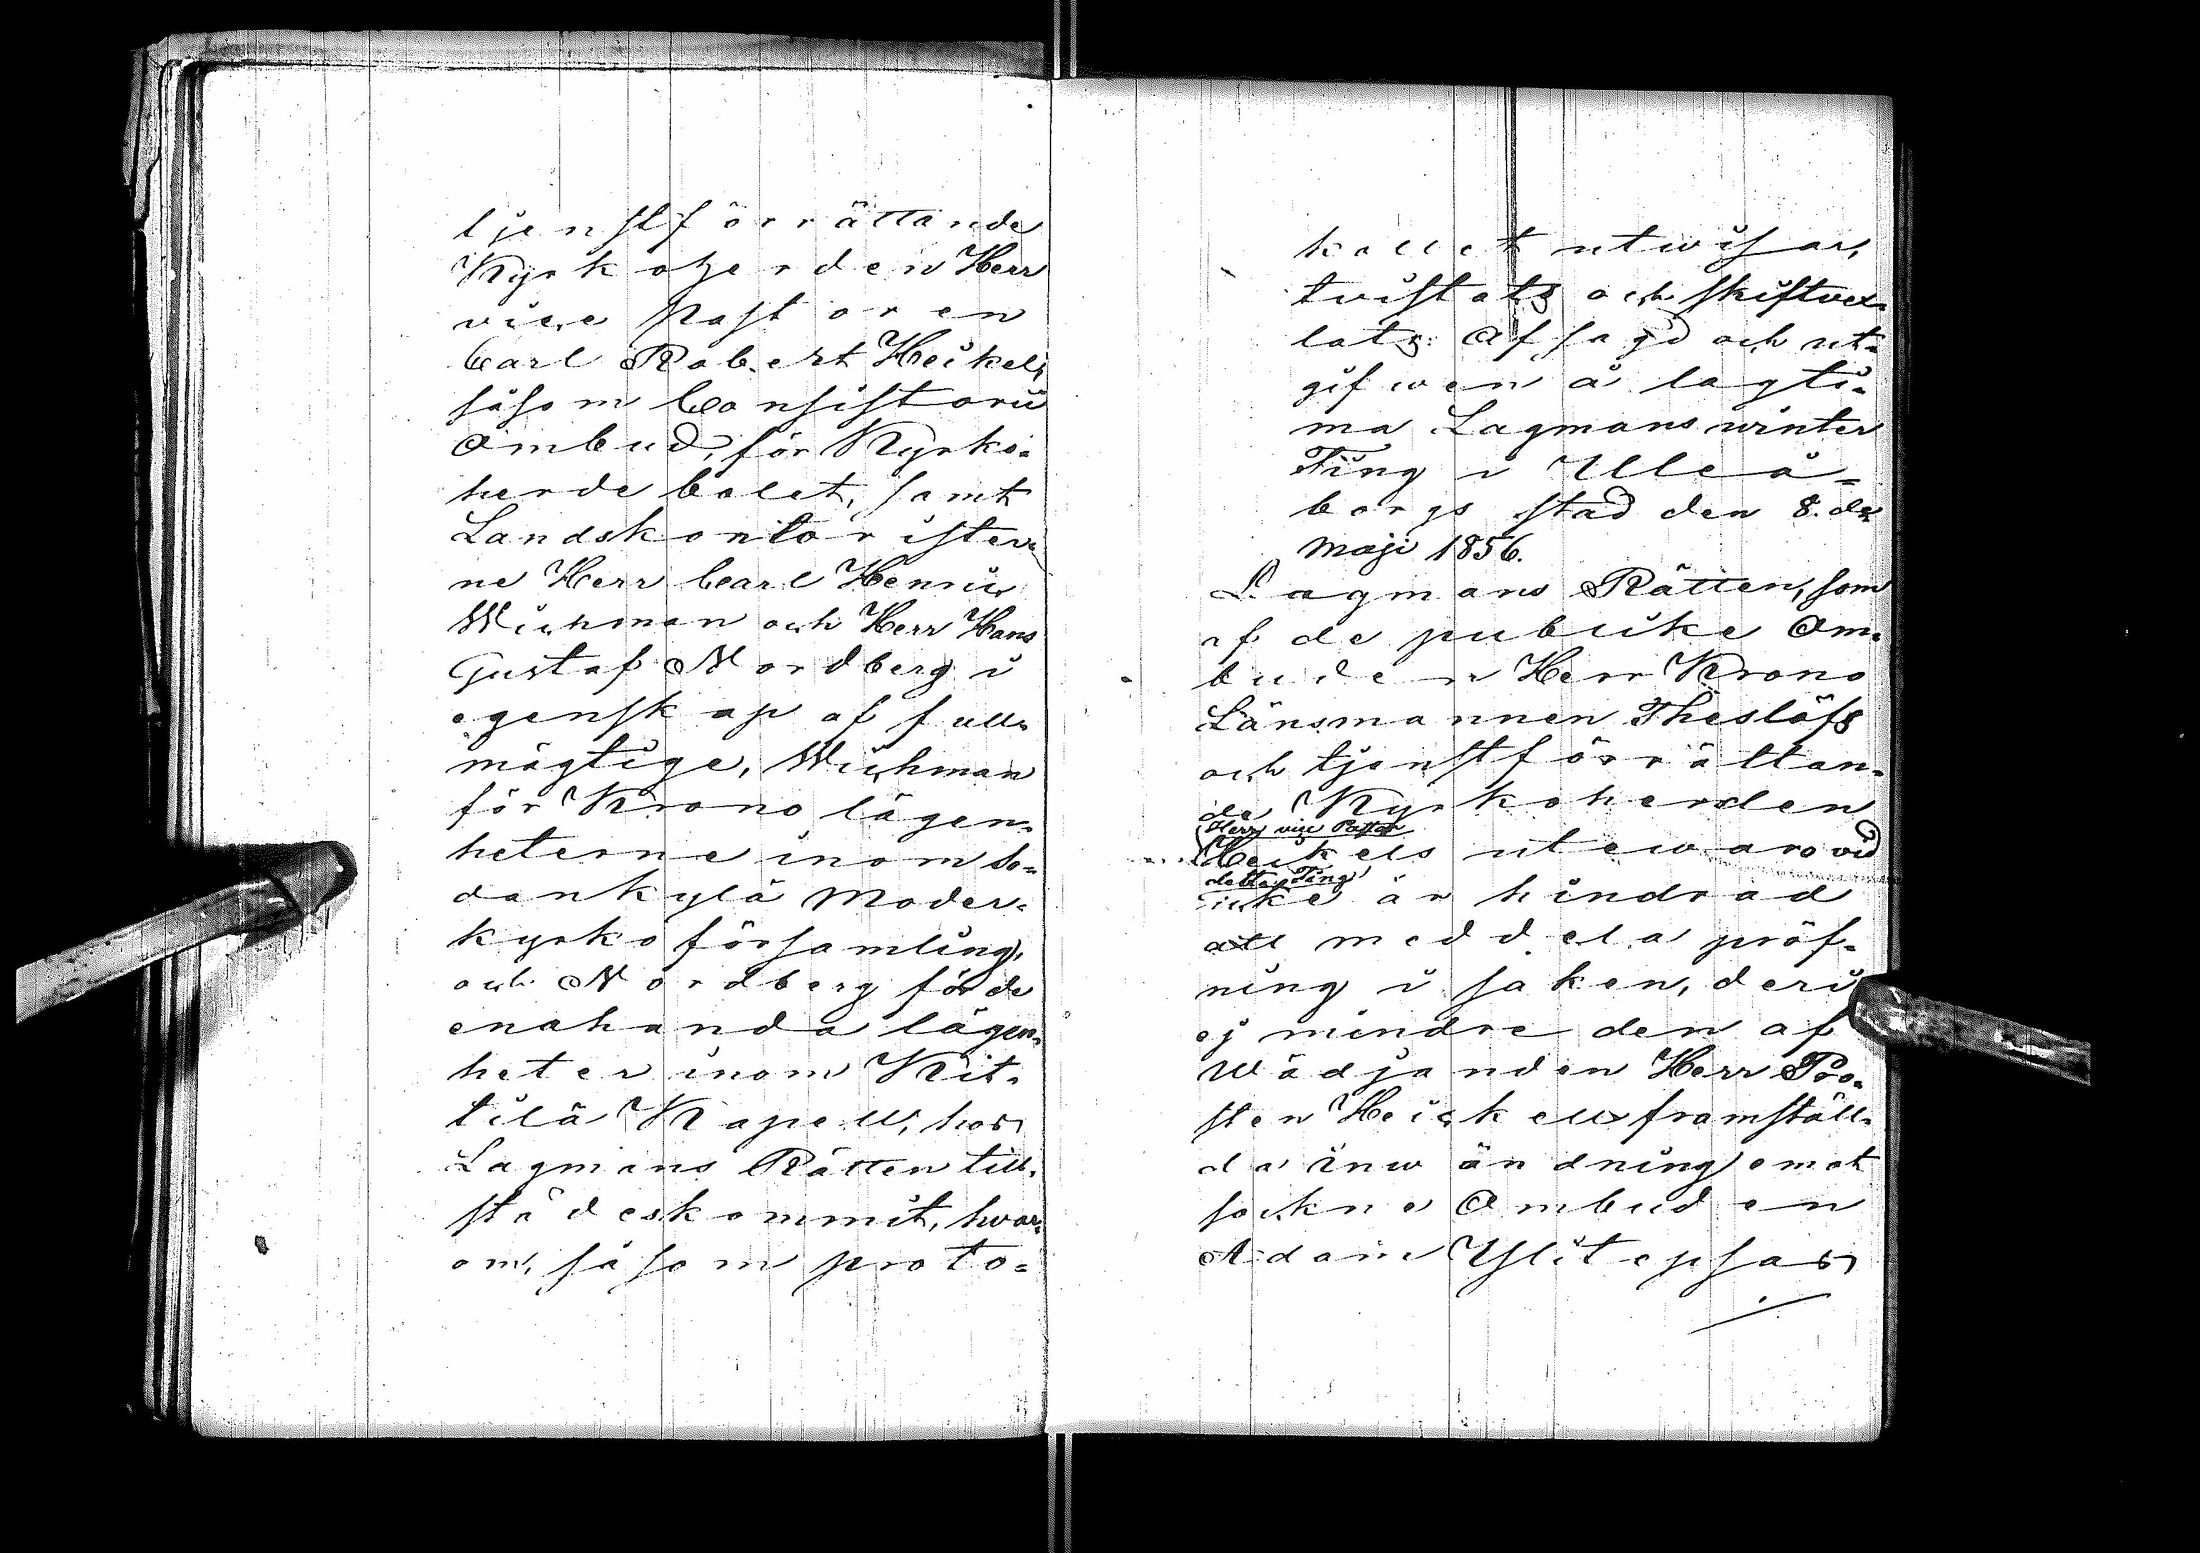 tjenstförrättande
Kyrkoherden Herr
vice Pastoren
Carl Robert Heikel,
såsom Consistorii
Ombud, för Kyrko-
herde bolet, samt
Landskontorister-
ne Herr Carl Henric
Wichman och Herr Hans
Gustaf Nordberg i
egenskap af full-
mägtige, Wichman
för Krono lägen-
heterne inom So-
dankylä Moder-
kyrko församling,
och Nordberg för de
enahanda lägen-
heter inom Kit-
tilä Kapell, hos
Lagmans Rätten till-
städeskommit, hvar-
om, såsom proto-
kollet utwisar,
twistats och skiftwex-
lats: Afsagd och ut-
gifwen å lagti-
ma Lagmans winter
Ting i Uleå-
borgs stad den 8. de
Maji 1856.
Lagmans Rätten, som
af de publike Om-
buden Herr Krono
Länsmannen Theslöfs
och tjenstförrättan-
de Kyrkoherden
Herr vice Pastor
Heikels utewaro vid
detta Ting
icke är hindrad
att meddela pröf-
ning i saken, deri
ej mindre den af
Wädjanden Herr Pro-
sten Heickell framställ-
da inwändning emot
sockne Ombuden
Adam Ylitepsas